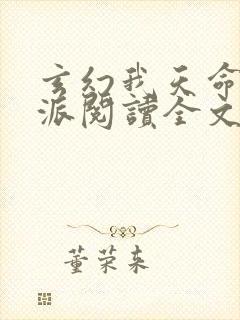 玄幻我天命
派閱讀全文
董荣来